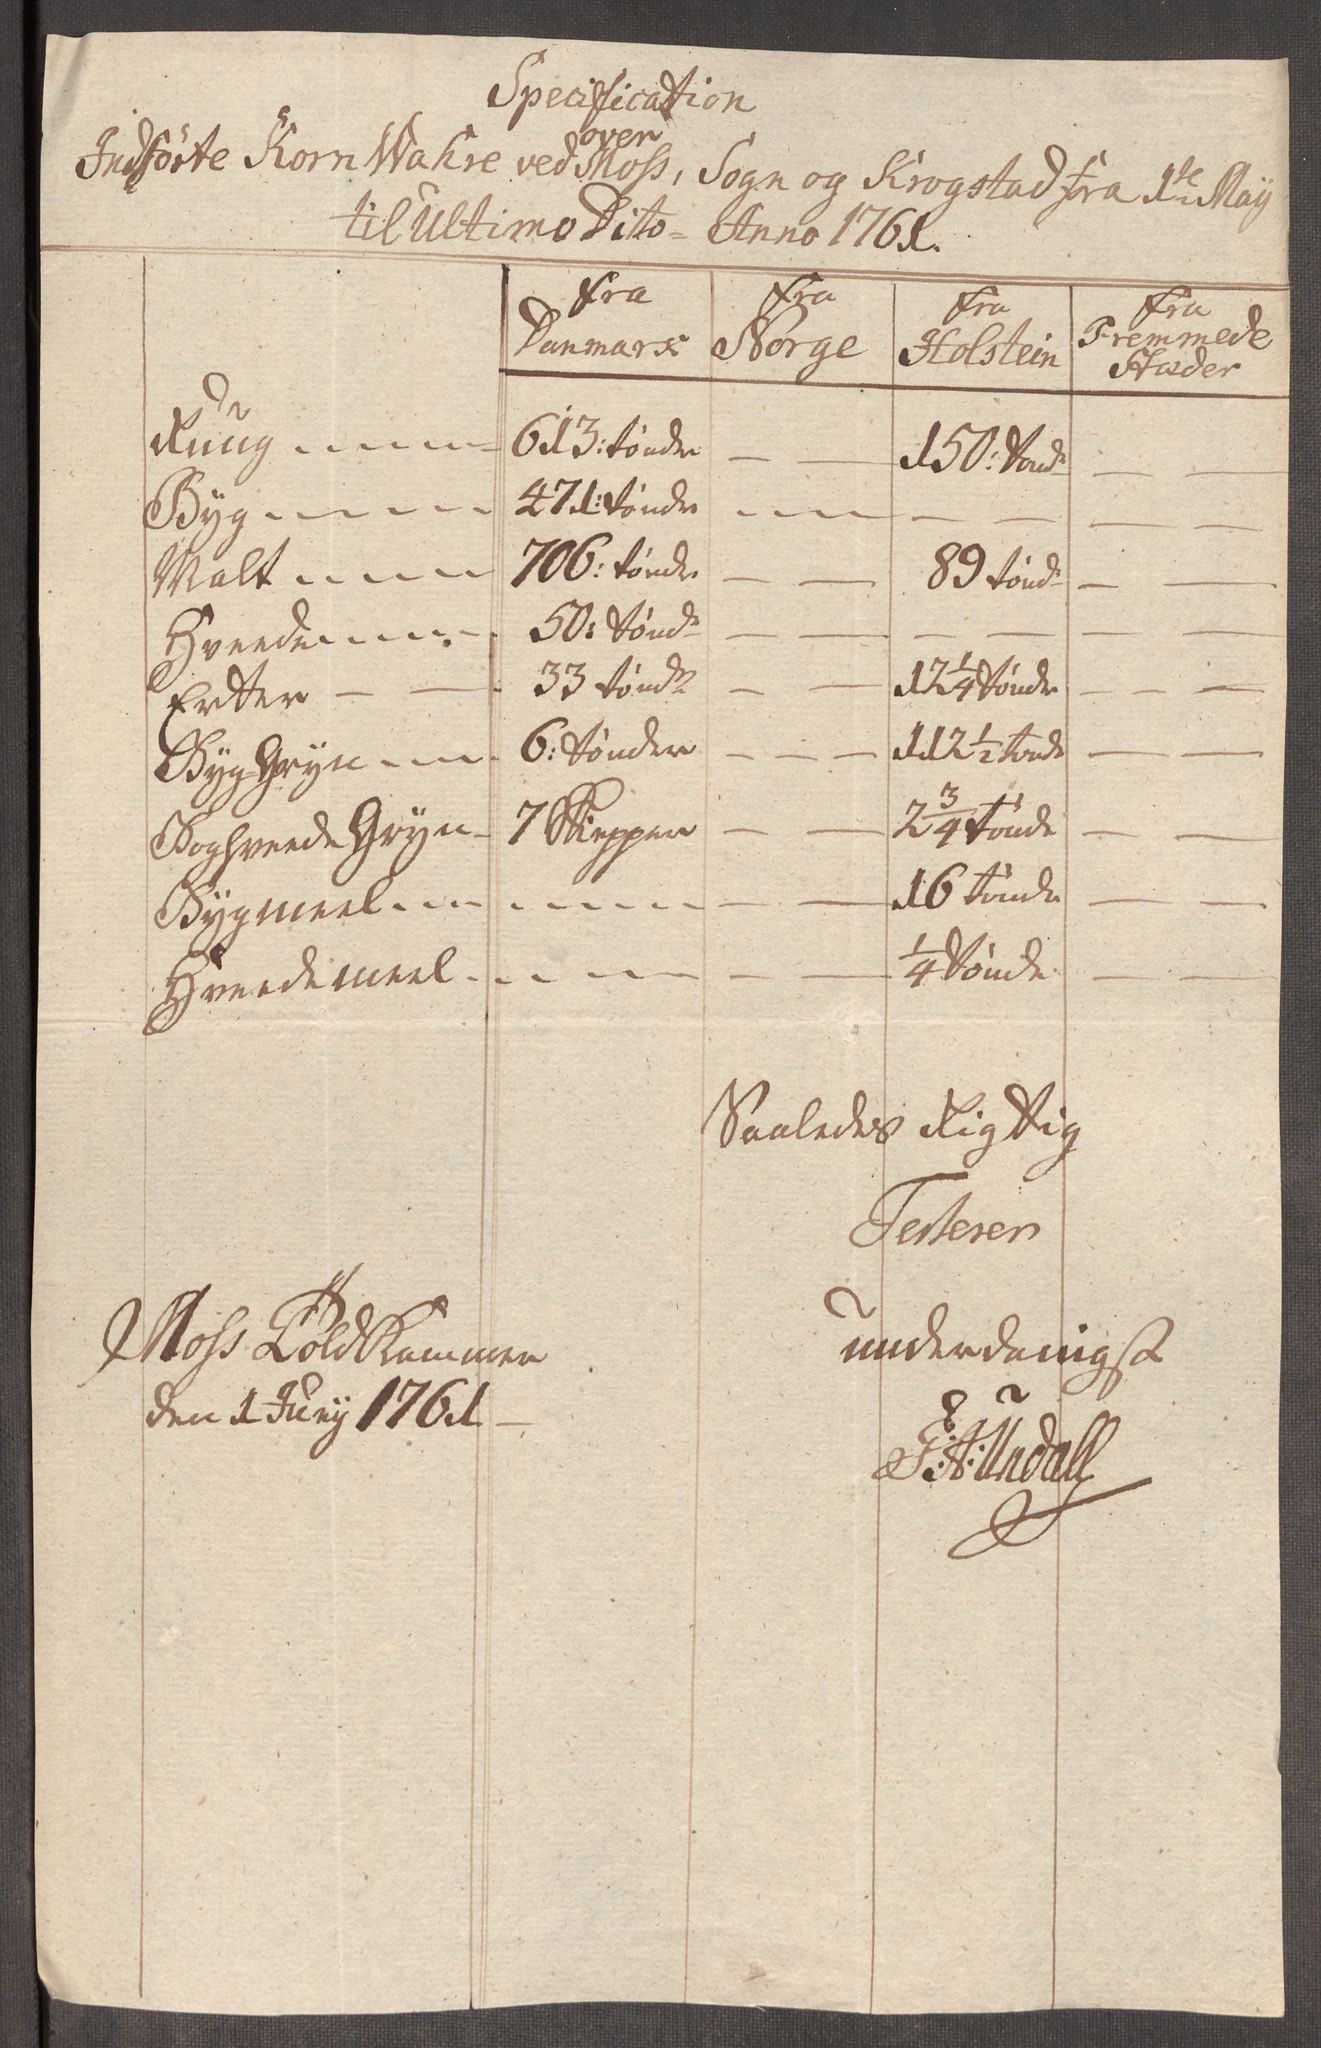 Specification
over
Indförte Korn Wahre ved Moss, Sogn og Krogstad fra 1te May
til Ultimo Dito - Anno 1761.
fra Danmark fra Norge fra Holstein fra Fremmede Stæder
Rug 613: tönder 150: tönd
Byg 471: tönder
Malt 706: tönder 89 tönd
Hveede 50: tönd
Erter 33 tönd 12 1/4 tönder
Byg Gryn 6: tönder 112 1/2 tönde
Boghveede Gryn 7 Skiepper 2 3/4 tönde
Bygmeel 16 tönde
Hveedemeel 1/4 tönde
Saaledes Rigtig
Testerer
Moss Told Kammer underdanigst
den 1 Juny 1761